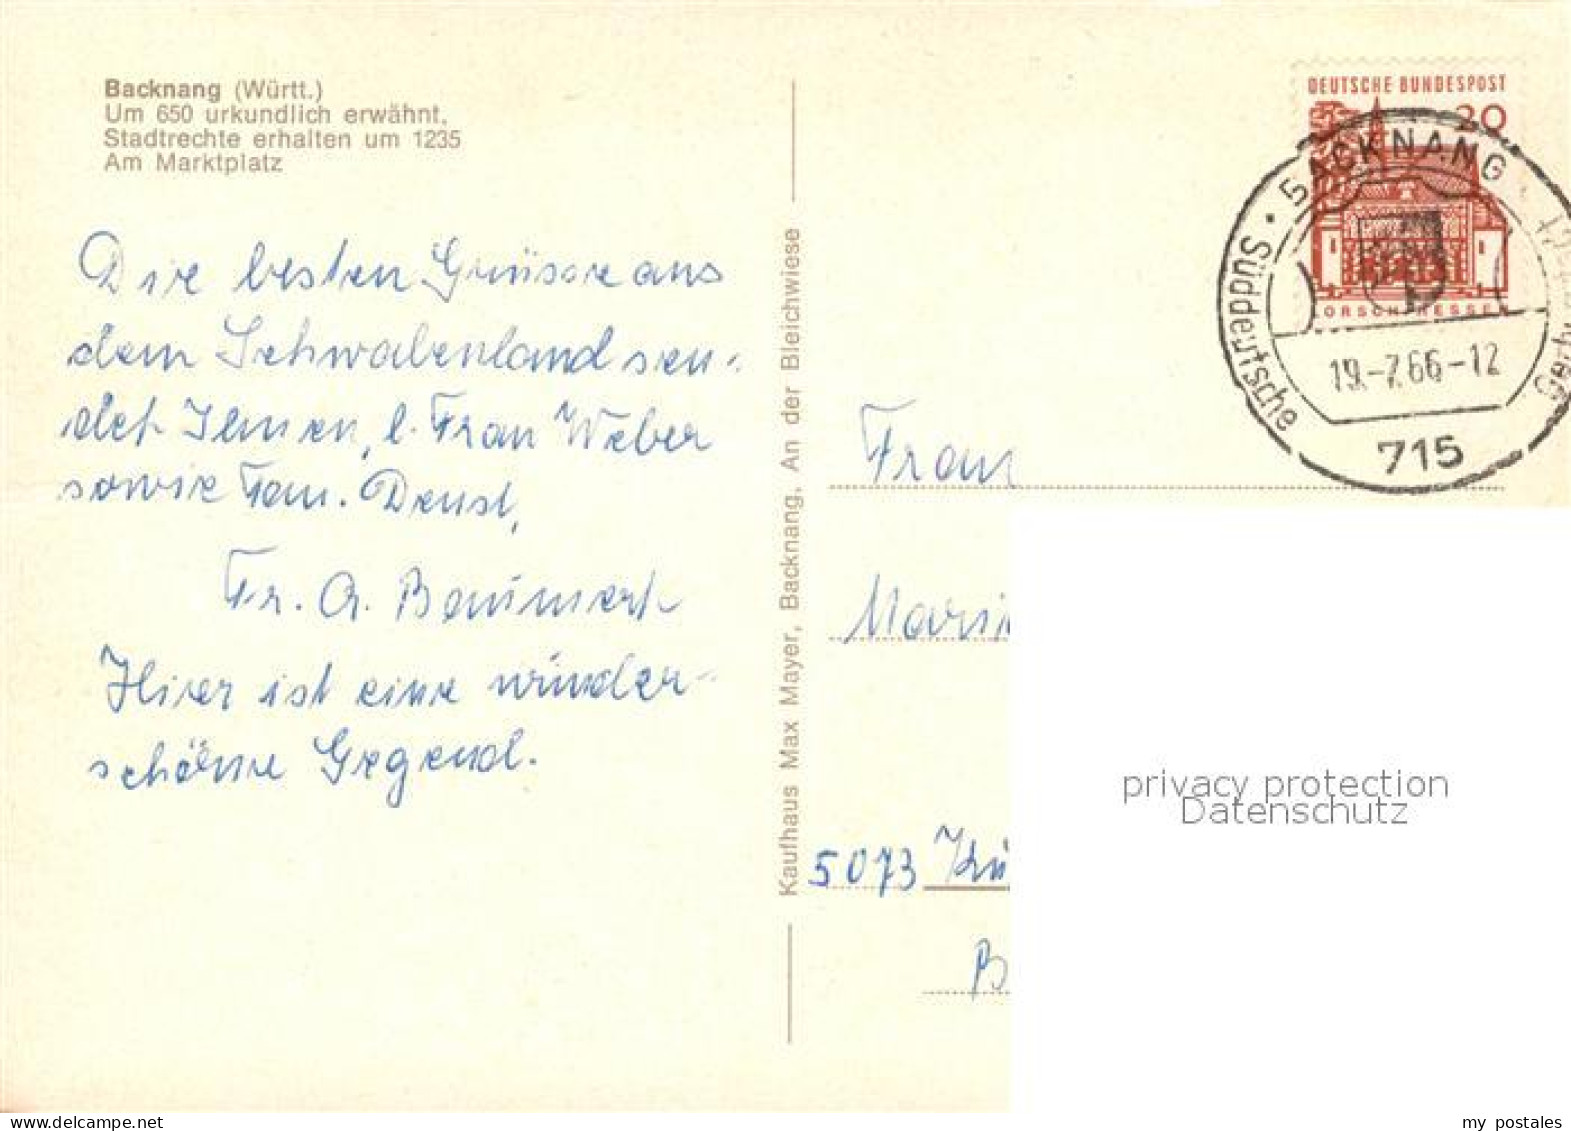 Backnang (Württ.)
Um 650 urkundlich erwähnt.
Stadtrechte erhalten um 1235
Am Marktplatz
Die besten Grüsse aus
dem Schwabenland sen-
det Ihnen, l. Frau Weber
sowie Fam. Denst,
Fr. A. Baumert
Hier ist eine wunder-
schöne Gegend.
Kaufhaus Max Mayer, Backnang, An der Bleichwiese
DEUTSCHE BUNDESPOST
20
LORSCH/HESSEN
BACKNANG
Süddeutsche
19.-7.66-12
715
Frau
5073
privacy protection
Datenschutz
my postales